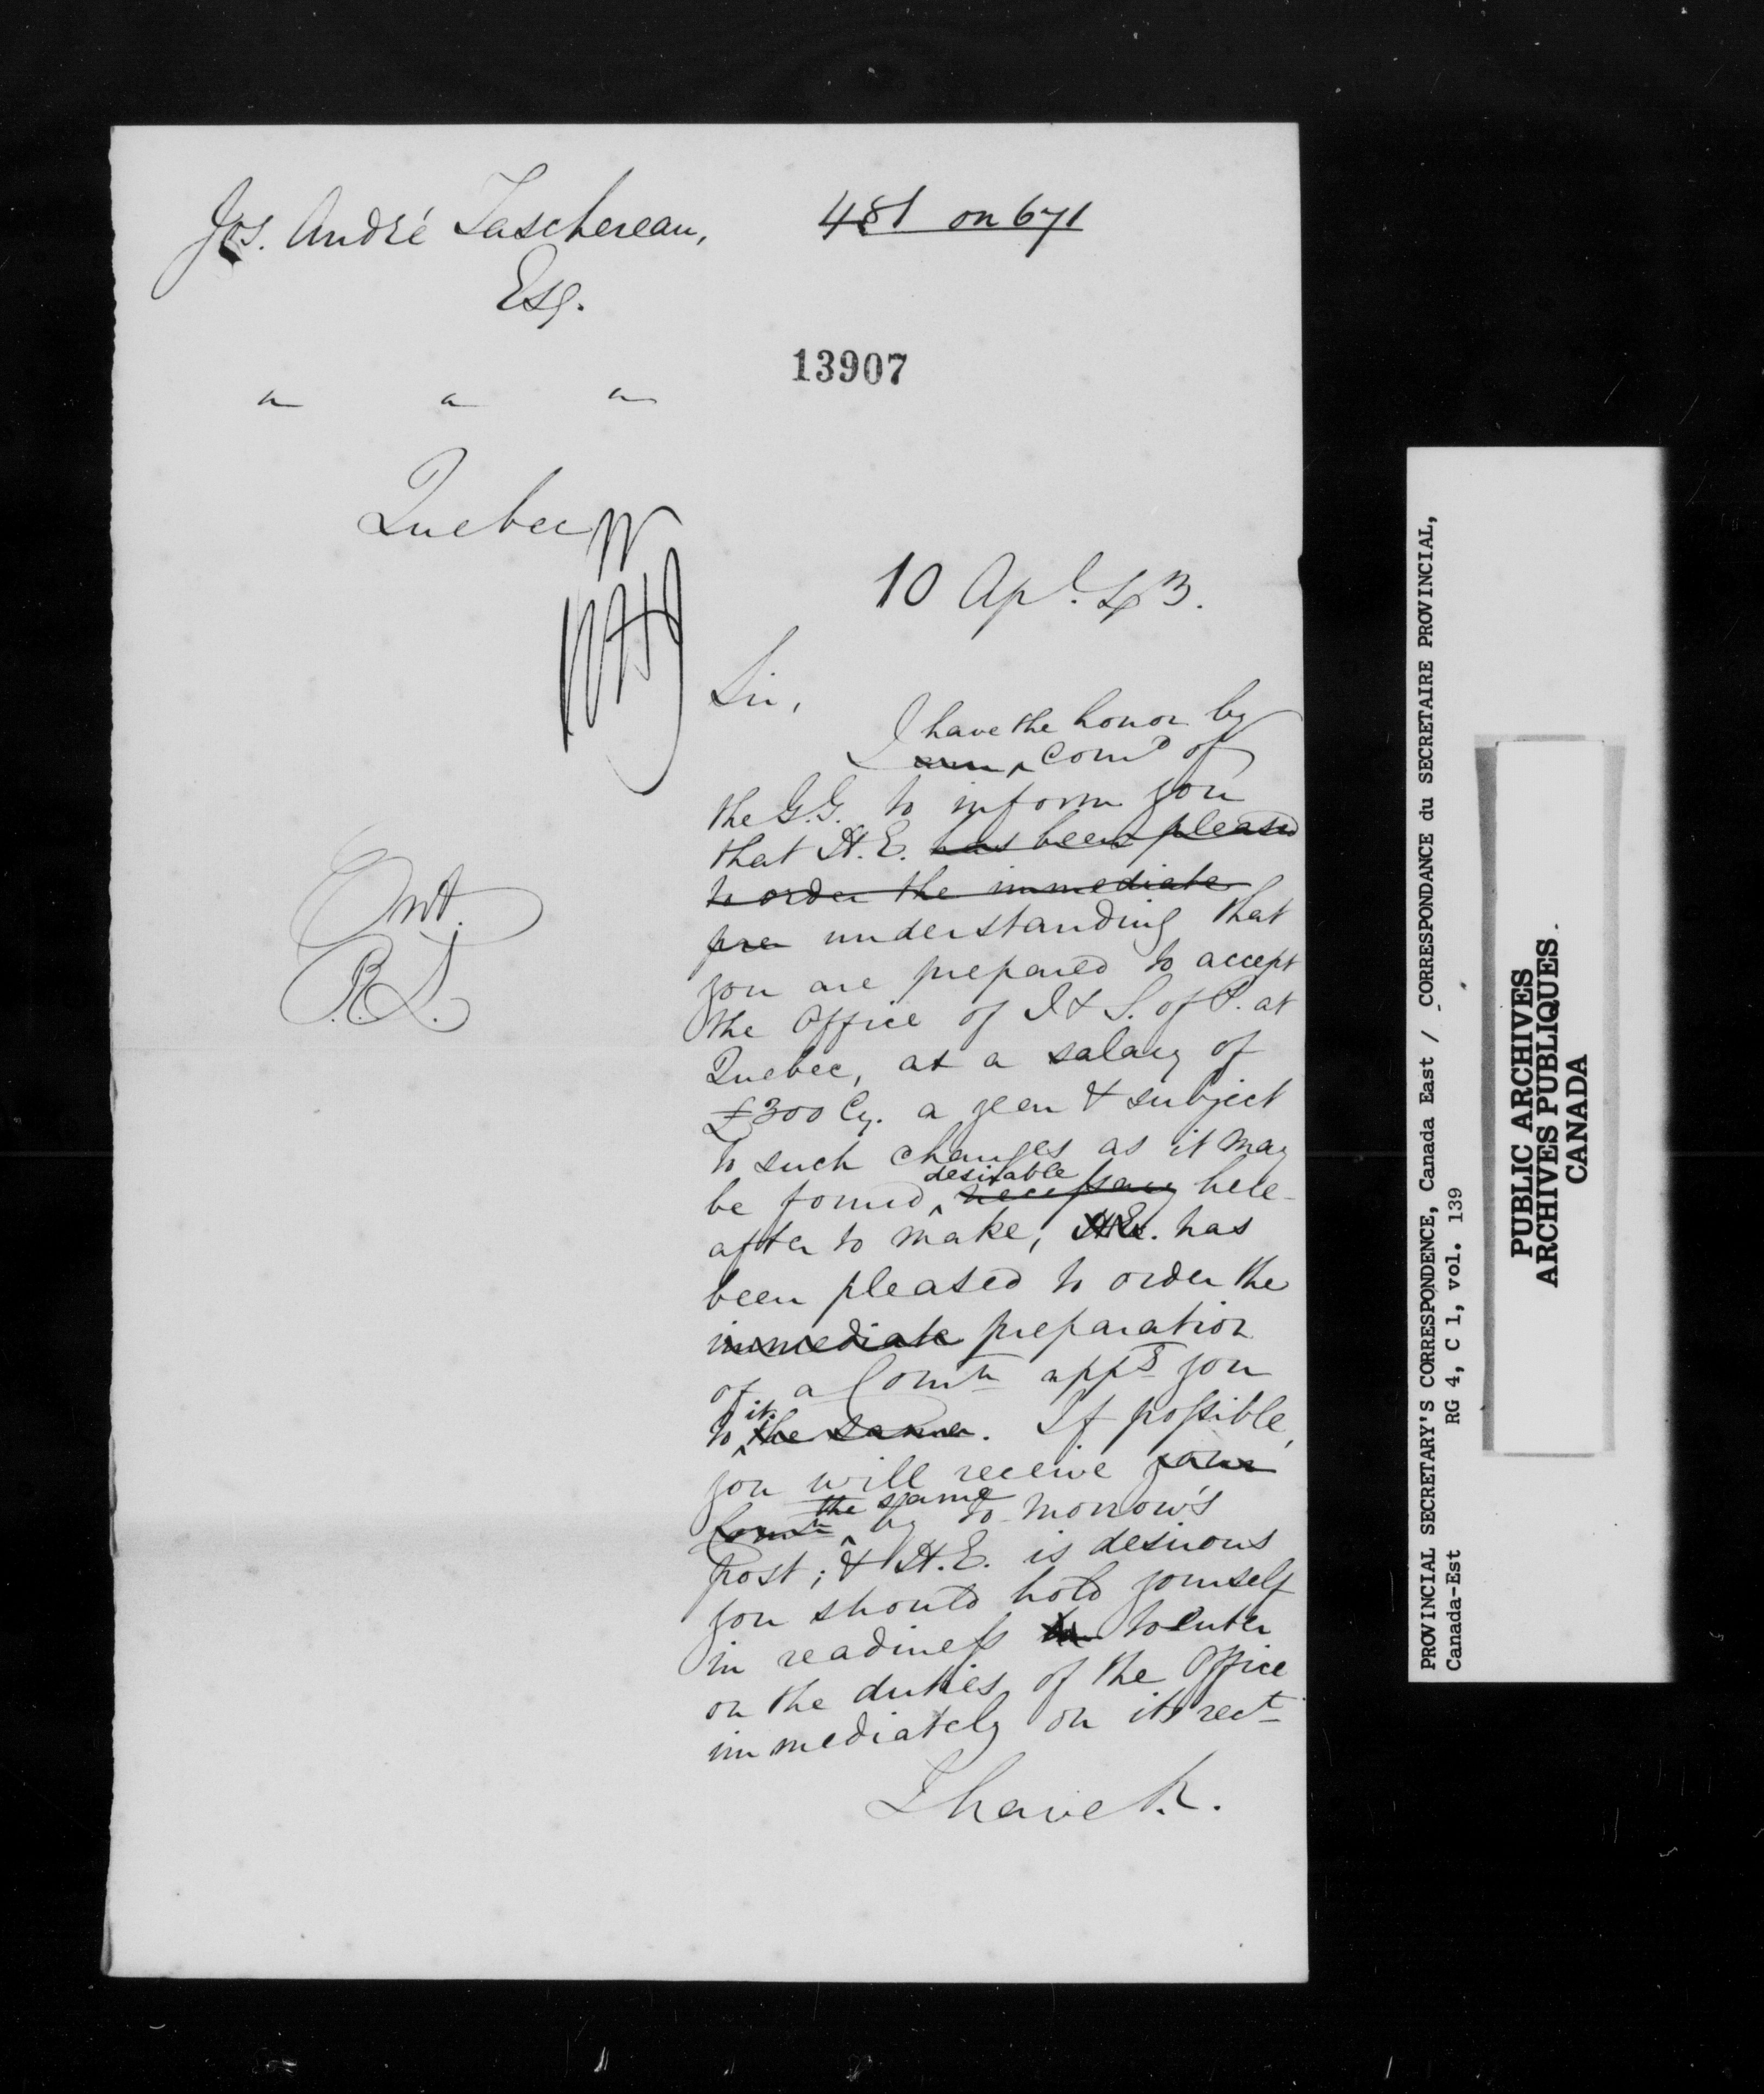 Jos. André Taschereau,
Esq.
481 on 671
13907
" " "
Quebec
10 Apl. 43.
Sir,
I have the honor by
I am comd of
the G.G. to inform you
that H.E. has been pleased
to order the immediate
pre understanding that
you are prepared to accept
the Office of I & S. of P. at
Quebec, at a salary of
£300 Cy. a year & subject
to such changes as it may
desirable
be found necessary here-
after to make, H.E. has
been pleased to order the
immediate preparation
of a Comn appg you
it.
to the same. If possible,
you will receive your
the same
Comn by to-morrow's
post; & H.E. is desirous
you should hold yourself
in readiness to enter
on the duties of the Office
immediately on its rect
I have &.
Ent.
R.D.
PROVINCIAL SECRETARY'S CORRESPONDENCE, Canada East / CORRESPONDANCE du SECRETAIRE PROVINCIAL,
Canada-Est RG 4, C 1, vol. 139
PUBLIC ARCHIVES
ARCHIVES PUBLIQUES
CANADA